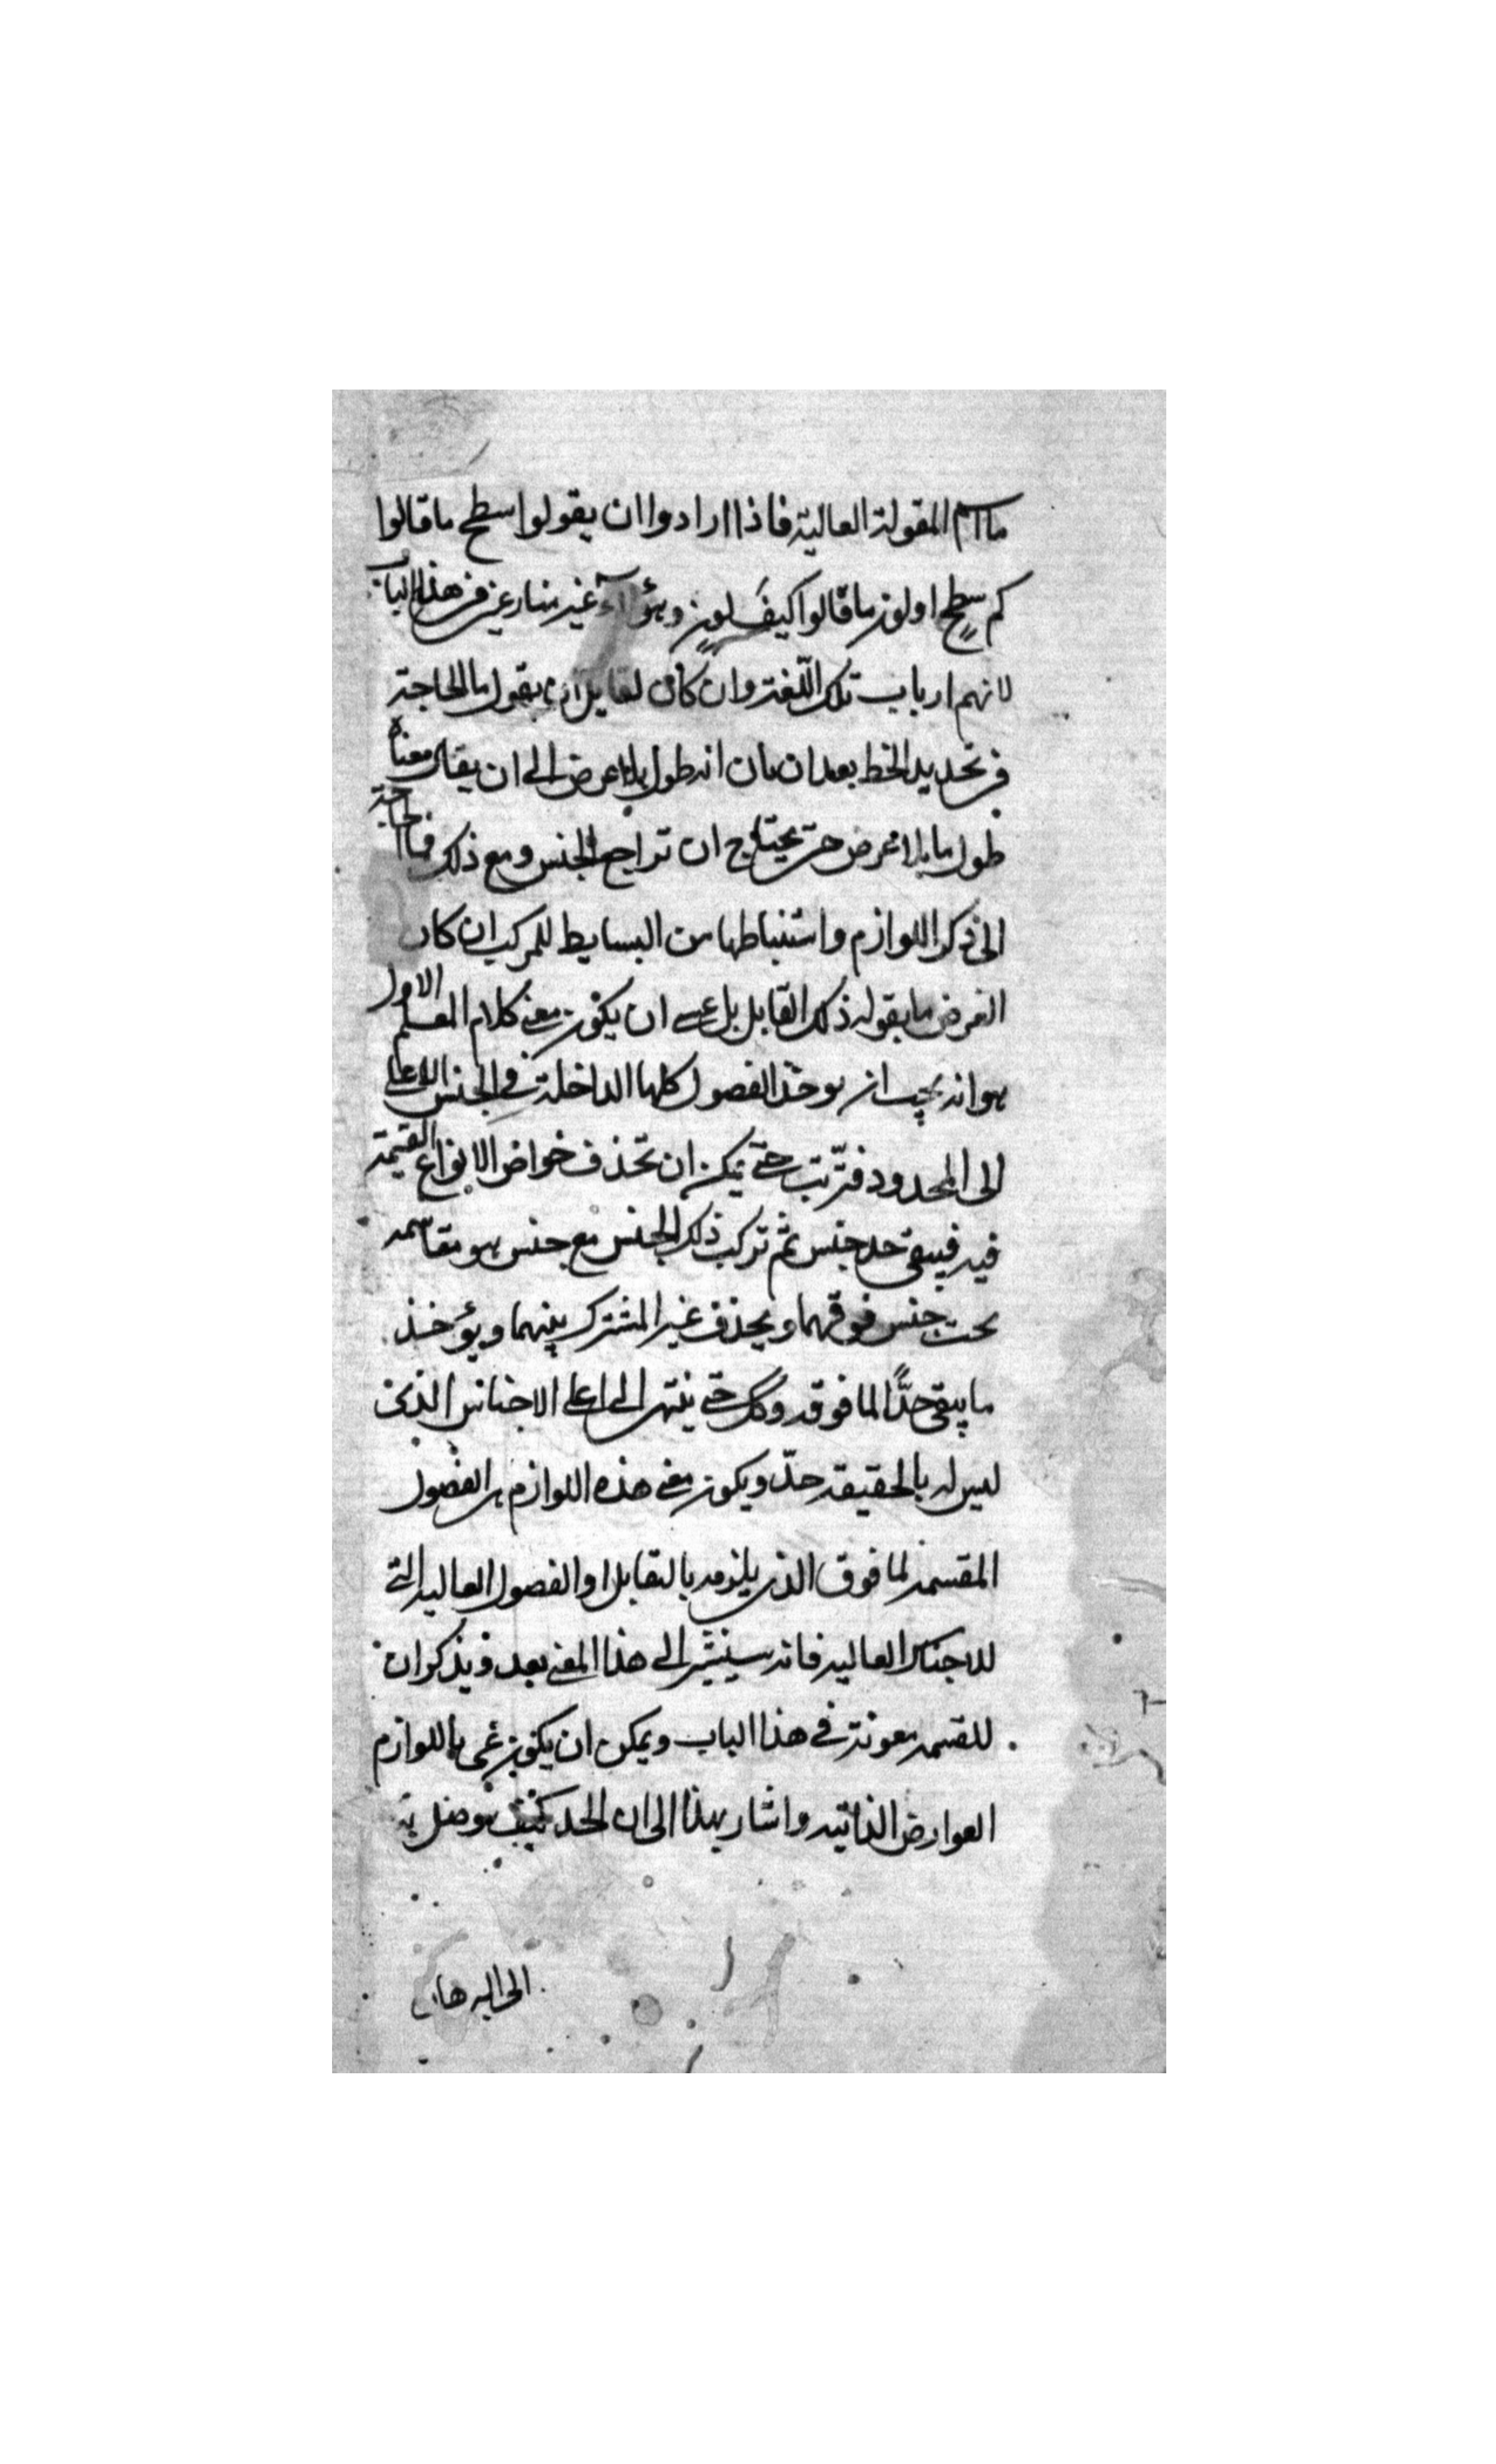 ما اسم المقولة العالية فاذا ارادوا ان يقولوا سطح ما قالوا
كم سطح او لون ما قالوا كيف لون وهؤلاء غير منازعين فى هذا الباب
لانهم ارباب تلك اللغة وان كان لقايل ان يقول ما الحاجة
فى تحديد الخط بعد ان بان انه طول بلا عرض الى ان يقال معناه
طول ما بلا عرض حتى يحتاج ان تراجع الجنس ومع ذلك فما الحاجة
الى ذكر اللوازم واستنباطها من البسايط للمركب ان كان
الغرض ما يقوله ذلك القايل بل عسى ان يكون معنى كلام المعلم الاول
هو انه يجب ان يوخذ الفصول كلها الداخلة فى الجنس الاعلى
الى المحدود فترتب حتى يمكن ان تحذف خواص الانواع القسيمة
فيه فيبقى حد جنس ثم تركب ذلك الجنس مع جنس هو مقاسمه
تحت جنس فوقهما ويحذف غير المشترك بينهما ويؤخذ
ما يبقى حدًّا لما فوقه وكك حتى ينتهى الى اعلى الاجناس الذى
ليس له بالحقيقة حدّ ويكون معنى هذه اللوازم هى الفصول
المقسمة لما فوق الذى يلزمه بالتقابل او الفصول العاليه التى
للاجناس العاليه فانه سيشير الى هذا المعنى بعد ويذكر ان
للقسمه معونة فى هذا الباب ويمكن ان يكون عنى باللوازم
العوارض الذاتيه واشار بهذا الى ان الحد كيف يوصل به
الى البرهان